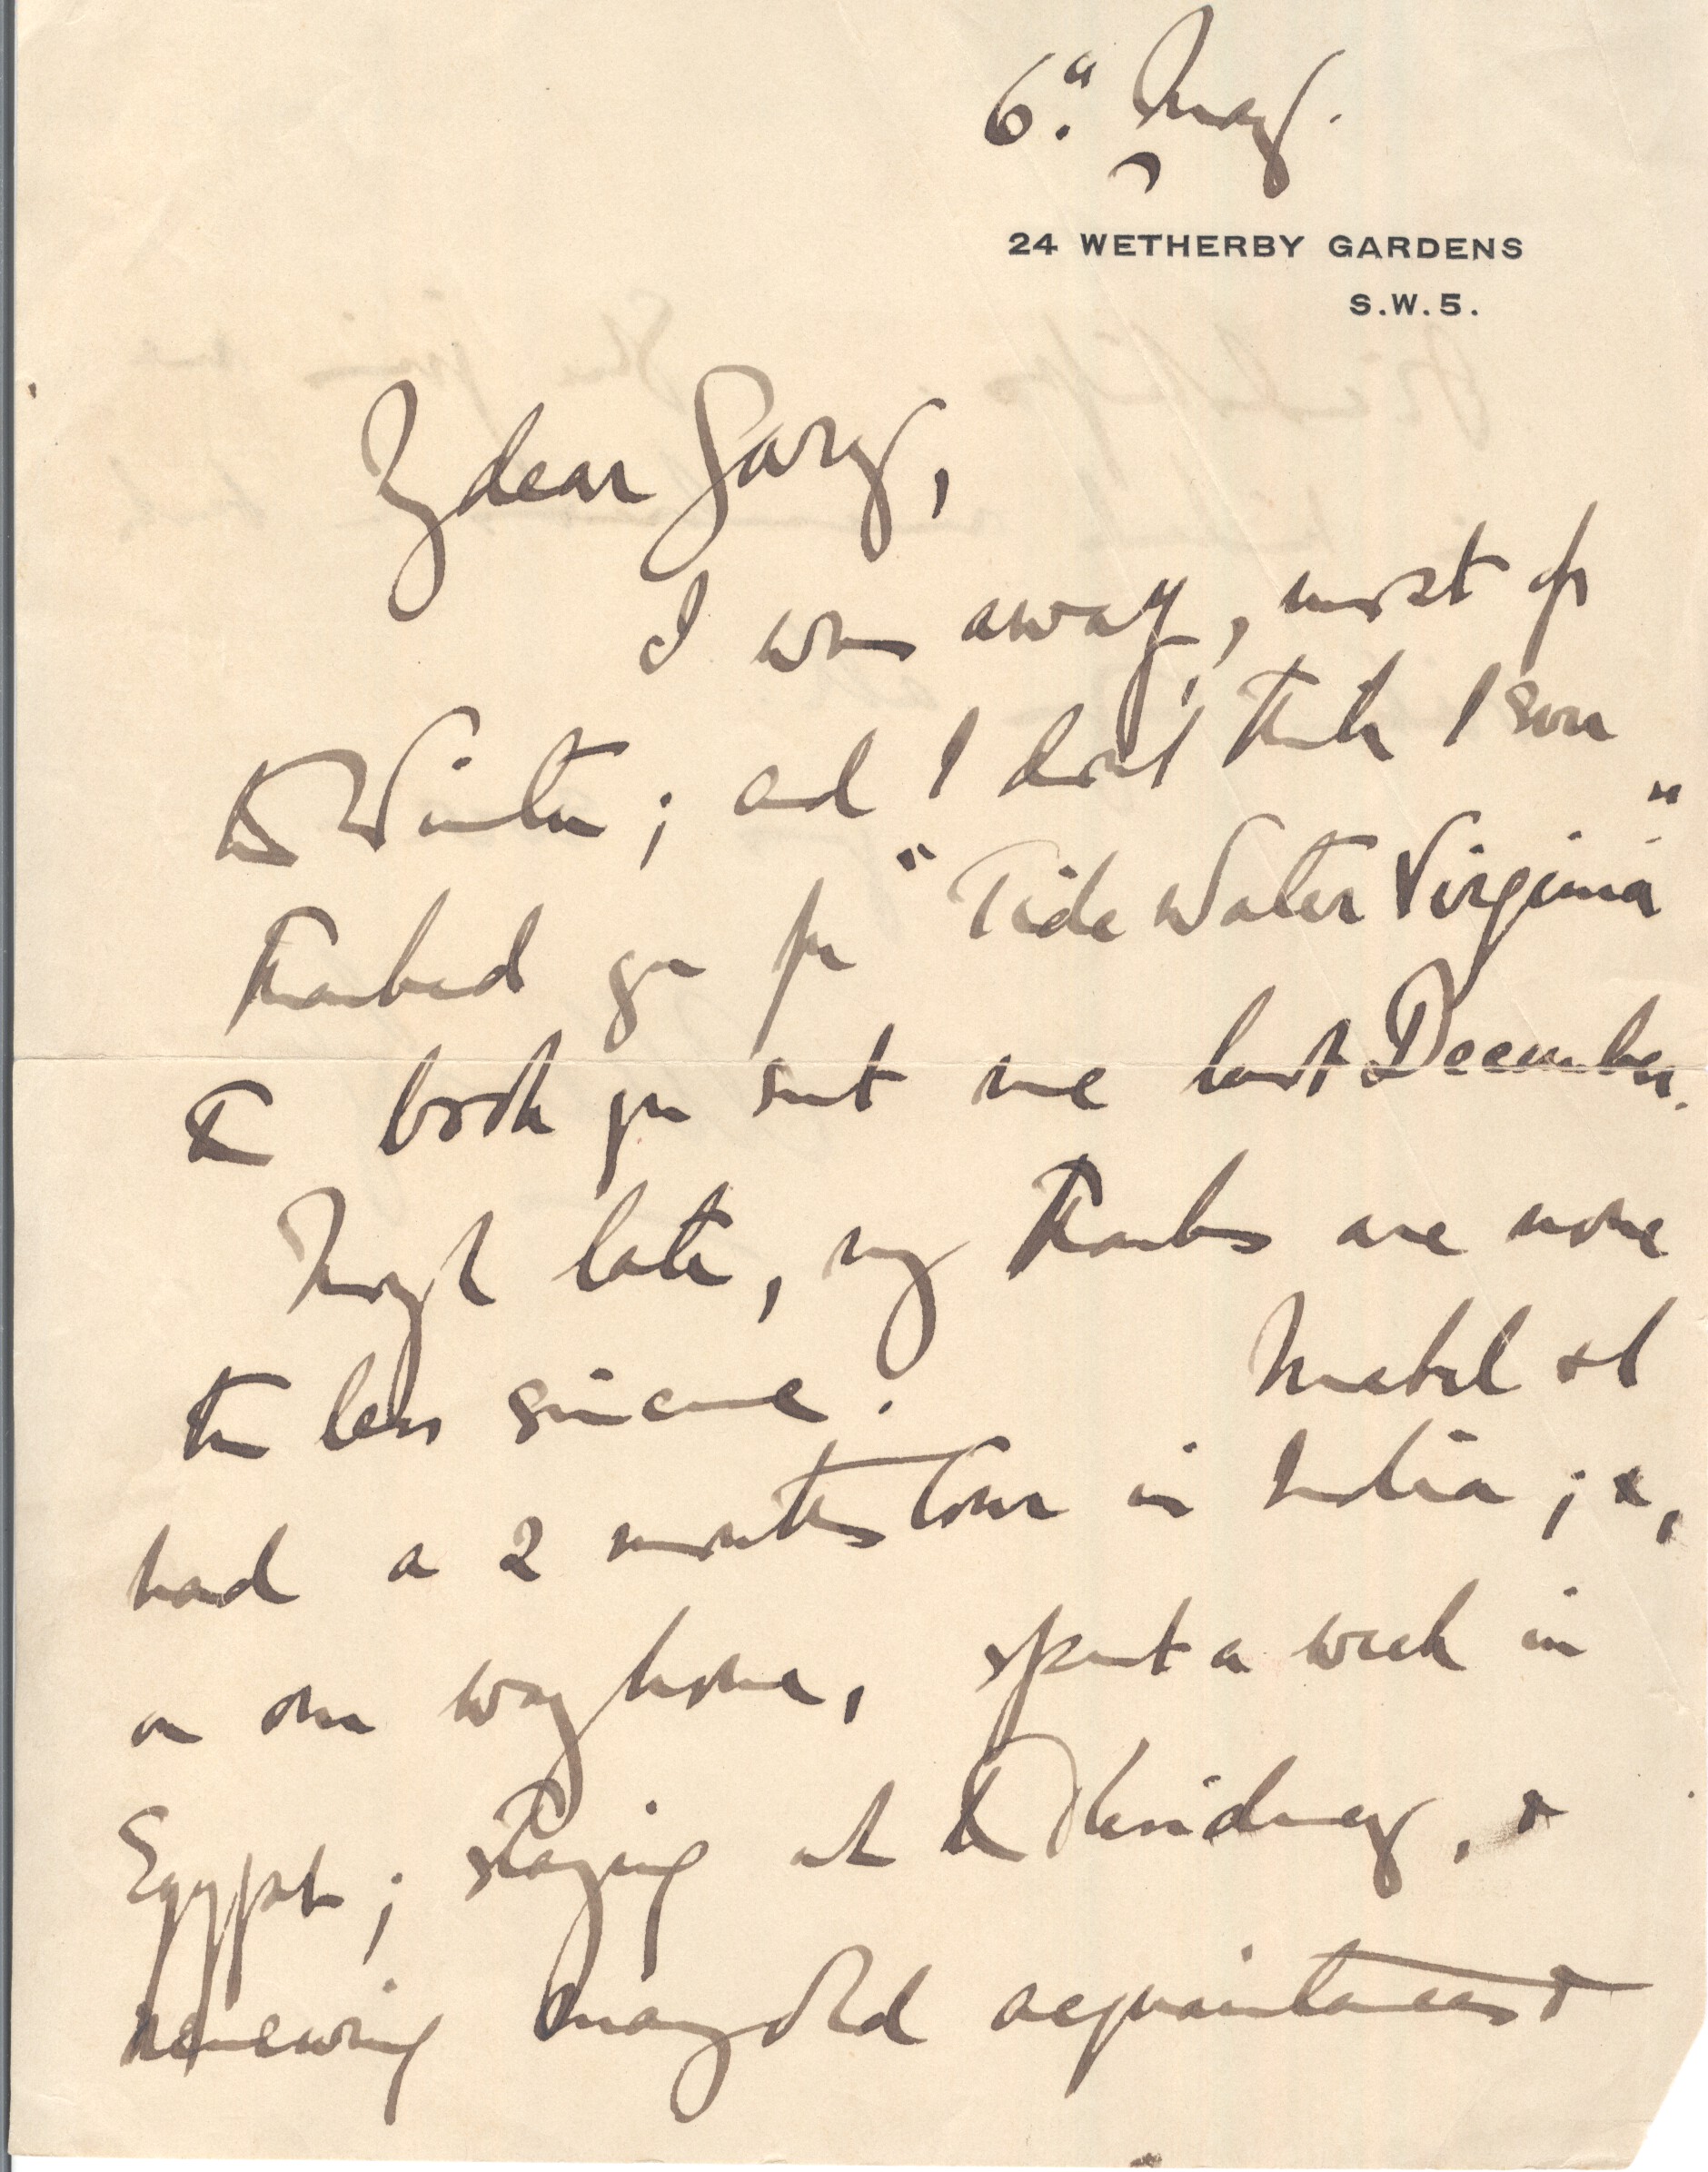 6th May.
24 WETHERBY GARDENS
S.W.5.
My dear Gary,
I was away, most of
the Winter; and I don't think I ever
thanked you for "Tide Water Virginia"
the book you sent me last December.
Though late, my thanks are none
the less sincere. Mabel & I
had a 2 months tour in India; &,
on our way home, spent a week in
Egypt; staying at the Residency, &
renewing many old acquaintances &